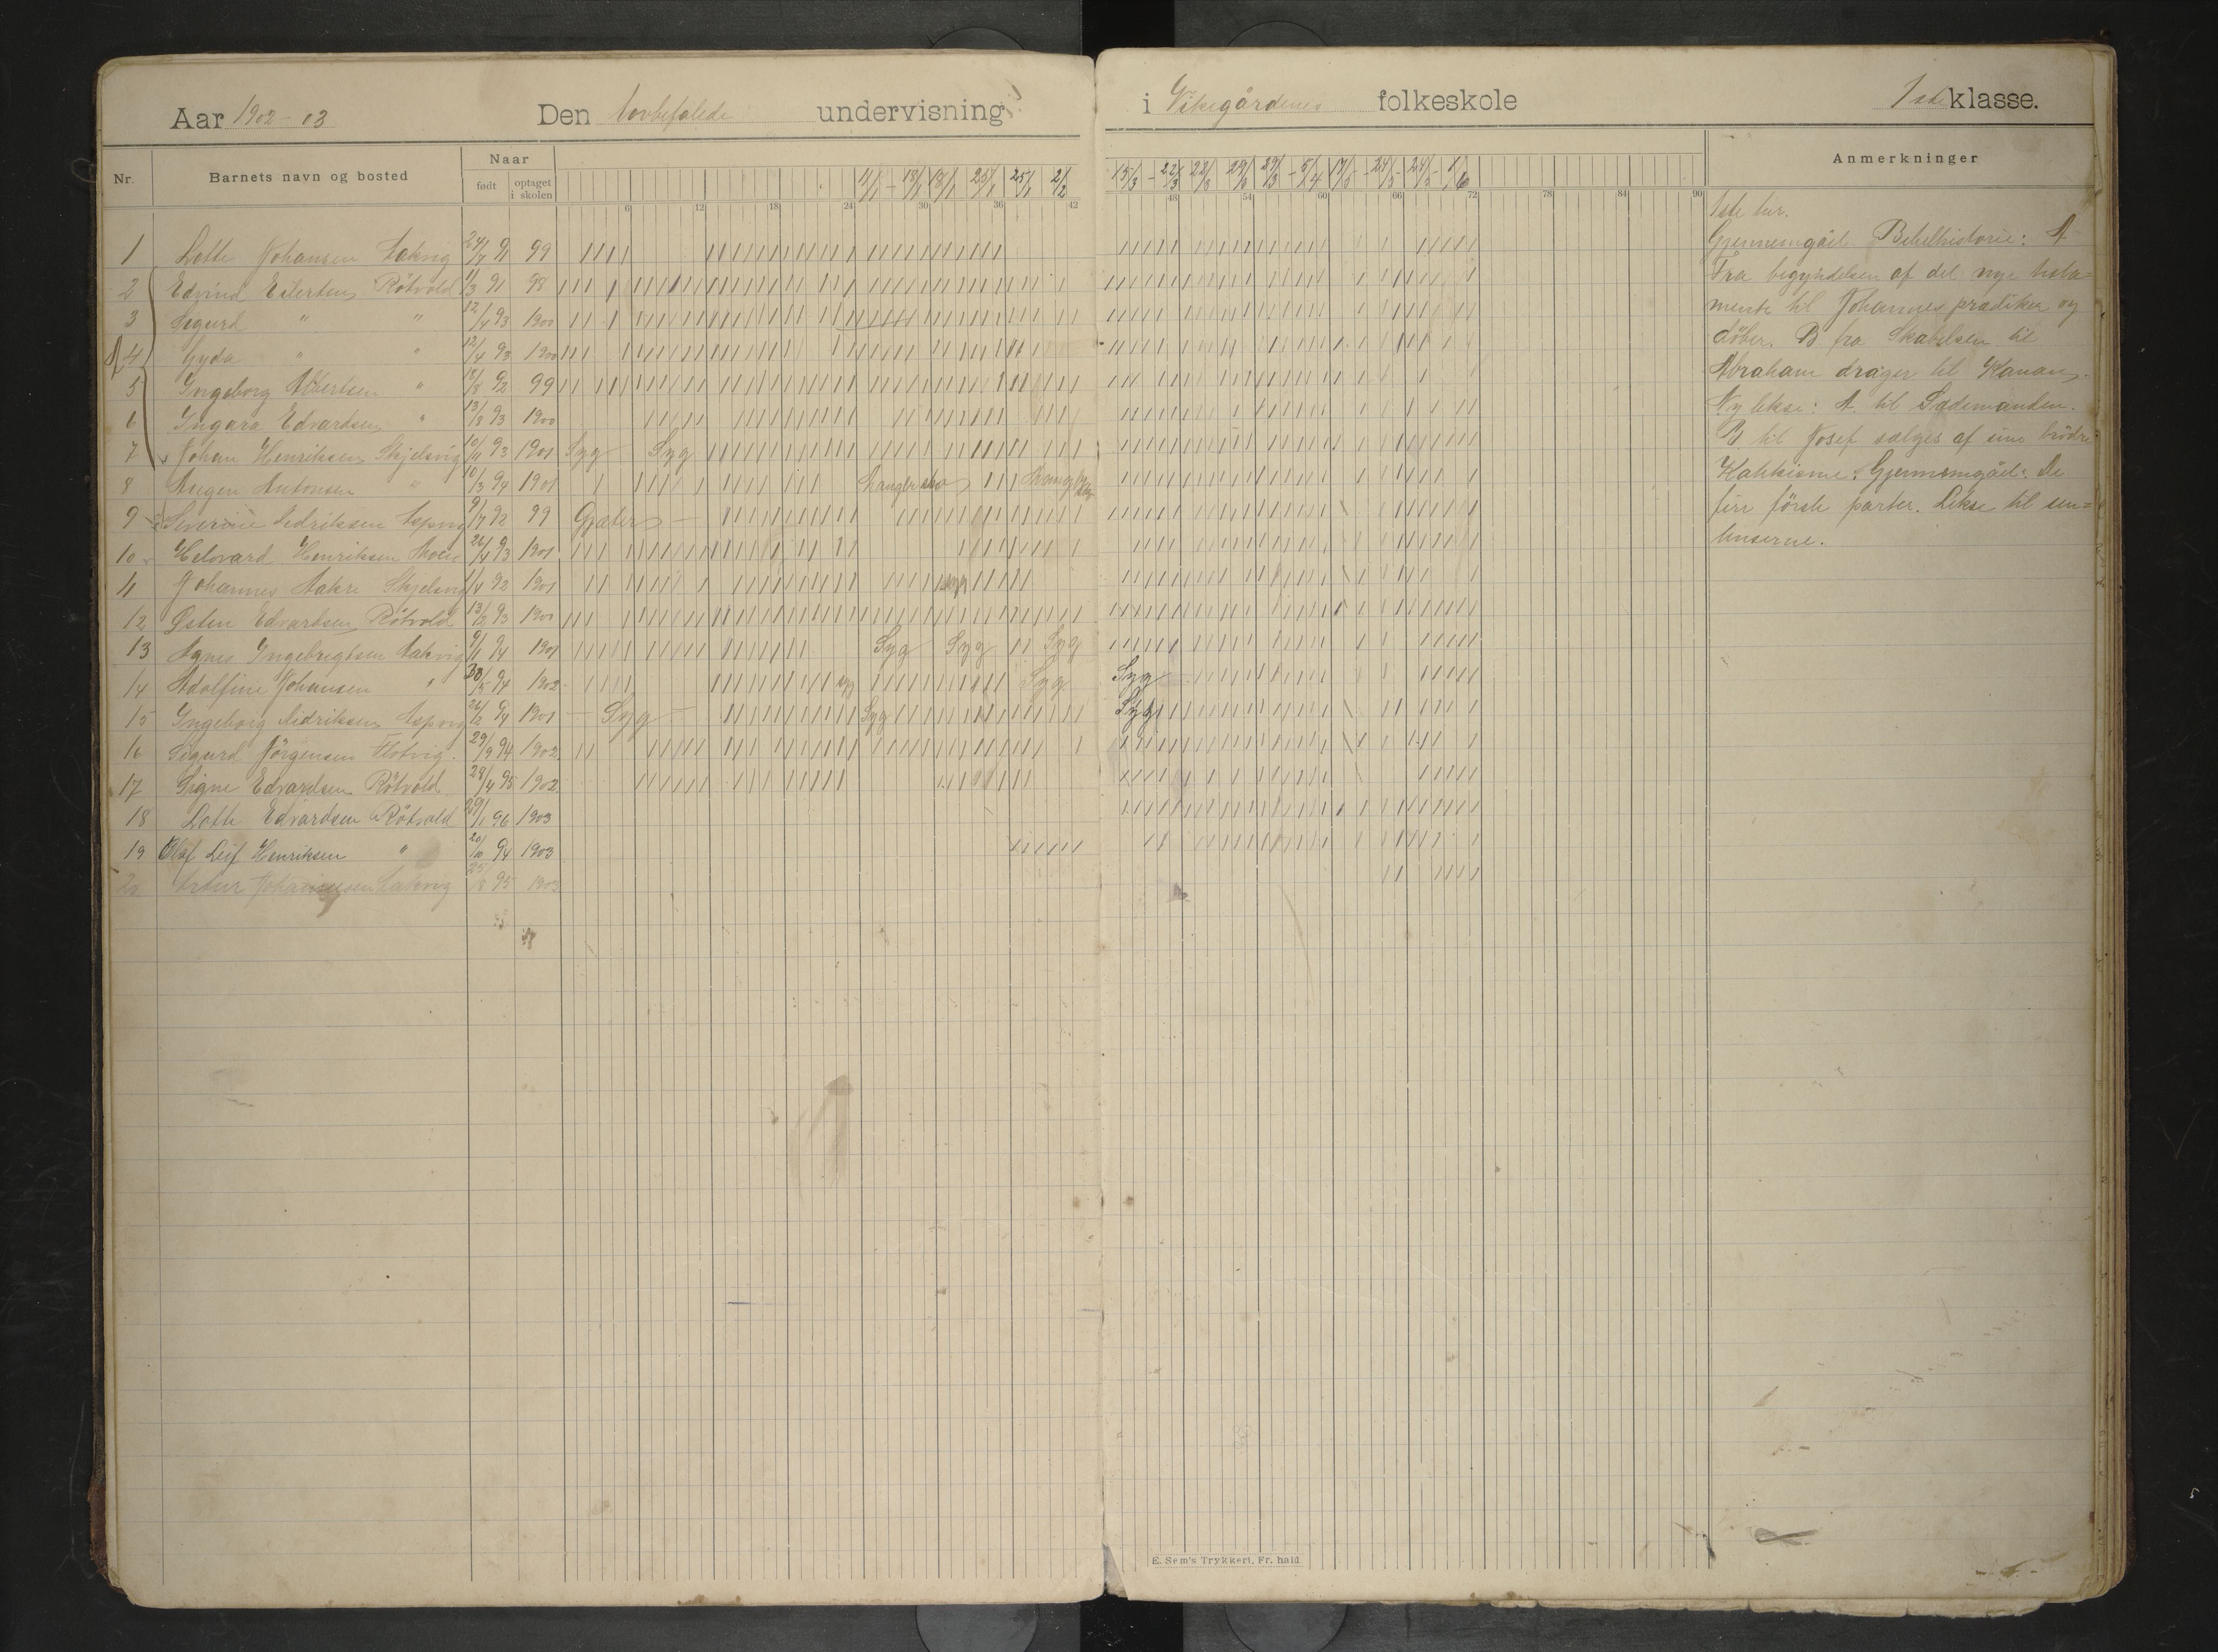 Aar 1902-03 Den lovbefalede undervisning i Vikegårdenes folkeskole 1ste klasse.
Nr. Barnets navn og bosted Naar født optaget i skolen Anmerkninger
11/1 - 18/1 18/1 25/1 25/1 2/2 15/3 - 22/3 22/3 29/3 29/3 - 5/4 17/5 - 24/5 24/5 - 1/6
6 12 18 24 30 36 42 48 54 60 66 72 78 84 90
1 Lotte Johansen Aakvig 24/7 91 99
2 Edvind Eilertsen Rötvold 11/3 91 98
3 Sigurd " " 12/4 93 1900
4 Gyda " " 12/4 93 1900
5 Ingeborg Albertsen " 18/8 92 99
6 Ingara Edvardsen " 13/8 93 1900
7 Johan Henriksen Skjelsvig 10/11 93 1901 Syg Syg
8 Augen Antonsen " 10/3 94 1901 Mangler sko
9 Severine Didriksen Aspvig 9/7 92 99 Gjæter
10 Henriksen 26/4 93 1901
11 Johannes Aakre Skjelsvig 11/4 92 1901 syg
12 Østen Edvardsen Rötvold 13/2 93 1900
13 Agnes Ingebrigtsen Aakvig 9/1 94 1901 Syg Syg Syg
14 Adolfine Johansen " 30/5 94 1902 syg Syg Syg
15 Ingeborg Didriksen Aspvig 26/2 94 1901 - Syg - Syg Syg
16 Sigurd Jörgensen Flotvig. 29/9 94 1902
17 Signe Edvardsen Rötvold 28/4 95 1902
18 Lotte Edvardsen Rötvold 29/1 96 1903
19 Olaf Leif Henriksen " 20/10 94 1903
20 Artur Johannesen Aakvig 25/8 95 1903
1ste tur.
Gjennemgået Bibelhistorie: A
Fra begyndelsen af det nye testa=
mente til Johannes prædiker og
döber. B fra Skabelsen til
Abraham drager til Kanan.
Ny lekse: A til Sædemanden.
B til Josef sælges af sine brödre
Katekisme: Gjennemgået: De
fire förste parter. Lekse til sen=
tenserne.
E. Sem's Trykkeri, Fr. hald